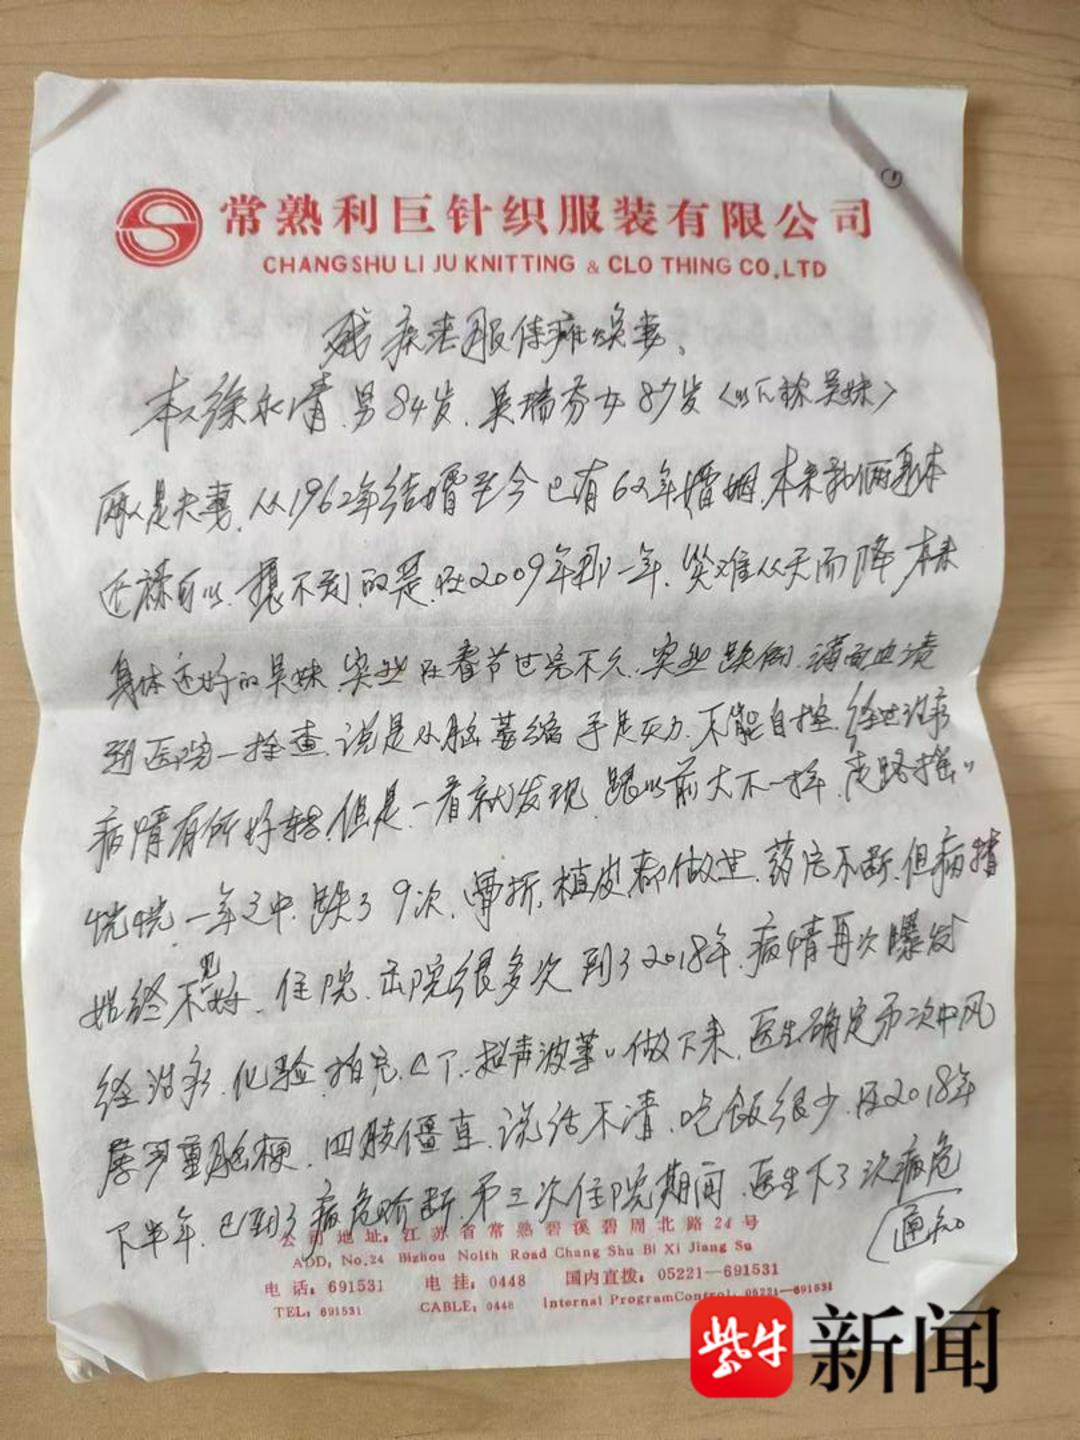 ①
常熟利巨针织服装有限公司
CHANGSHU LI JU KNITTING & CLO THING CO,LTD
残疾老服侍瘫痪妻、
本人徐永清、男84岁、吴瑞芬女87岁〈以下称吴妹〉
两人是夫妻、从1962年结婚至今已有62年婚姻、本来我俩身体
还算可以、想不到的是、在2009年那一年、灾难从天而降 本来
身体还好的吴妹、突然在春节过完不久、突然跌倒、满面血渍
到医院一捡查、说是小脑萎缩 手足灭力、不能自控、经过治疗
病情有所好转、但是、一看就发现、跟以前大不一样、走路摇〃
恍恍、一年之中、跌了9次、骨折、植皮、都做过、药后不断、但病情
始终不见好、住院、出院很多次 到了2018年、病情再次曝发
经治疗、化验、拍片、CT、超声波等〃做下来、医生确定为次中风
属严重脑梗、四肢僵直、说话不清、吃饭很少、在2018年
下半年、已到了病危诊断、第三次住院期间、医生下了次病危
通知
公司地址：江苏省常熟碧溪碧周北路24号
ADD, No.24 Bizhou Nolth Road Chang Shu Bi Xi Jiang Su
电话：691531 电挂：0448 国内直拨：05221—691531
TEL: 691531 CABLE: 0448 Internal ProgramControl: 05221—691531
紫牛新闻